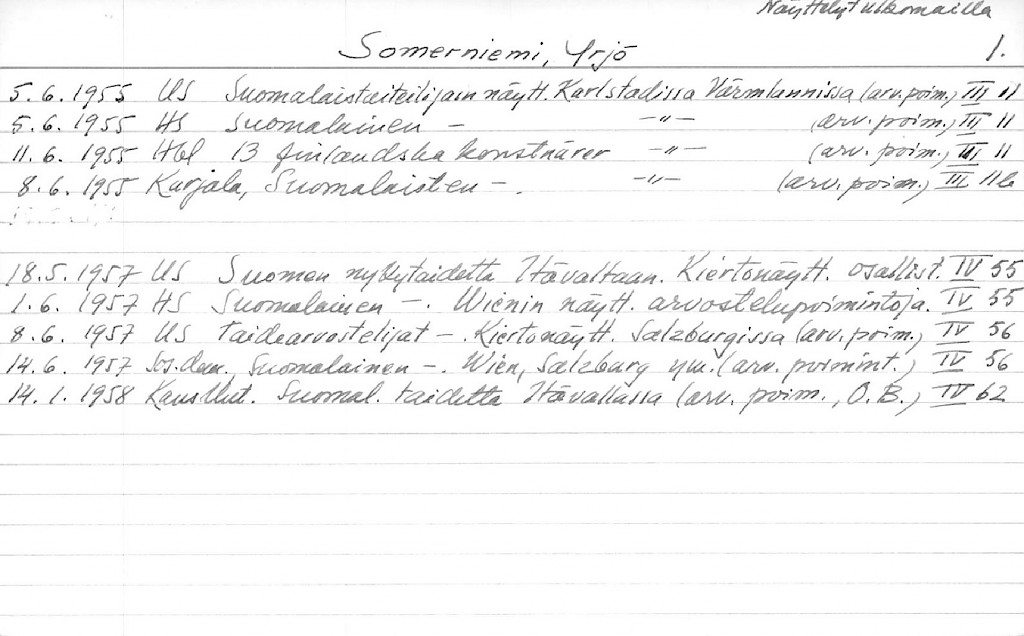 Näyttelyt ulkomailla
Somerniemi, Yrjö 1.
5.6.1955 US Suomalaistaiteilijain näytt. Karlstadissa Värmlannissa (arv. poim.) III 11
5.6.1955 HS Suomalainen — —"— (arv. poim.) III 11
11.6.1955 Hbl 13 finländska konstnärer —"— (arv. poim.) III 11
8.6.1955 Karjala, Suomalaisten —. —"— (arv. poim.) III 11b
18.5.1957 US Suomen nykytaidetta Itävaltaan. Kiertonäytt. osallist. IV 55
1.6.1957 HS Suomalainen —. Wienin näytt. arvostelupoimintoja. IV 55
8.6.1957 US taidearvostelijat —. Kiertonäytt. Salzburgissa (arv. poim.) IV 56
14.6.1957 Sos.dem. Suomalainen —. Wien, Salzburg ym. (arv. poimint.) IV 56
14.1.1958 Kans.Uut. Suomal. taidetta Itävallassa (arv. poim., O.B.) IV 62